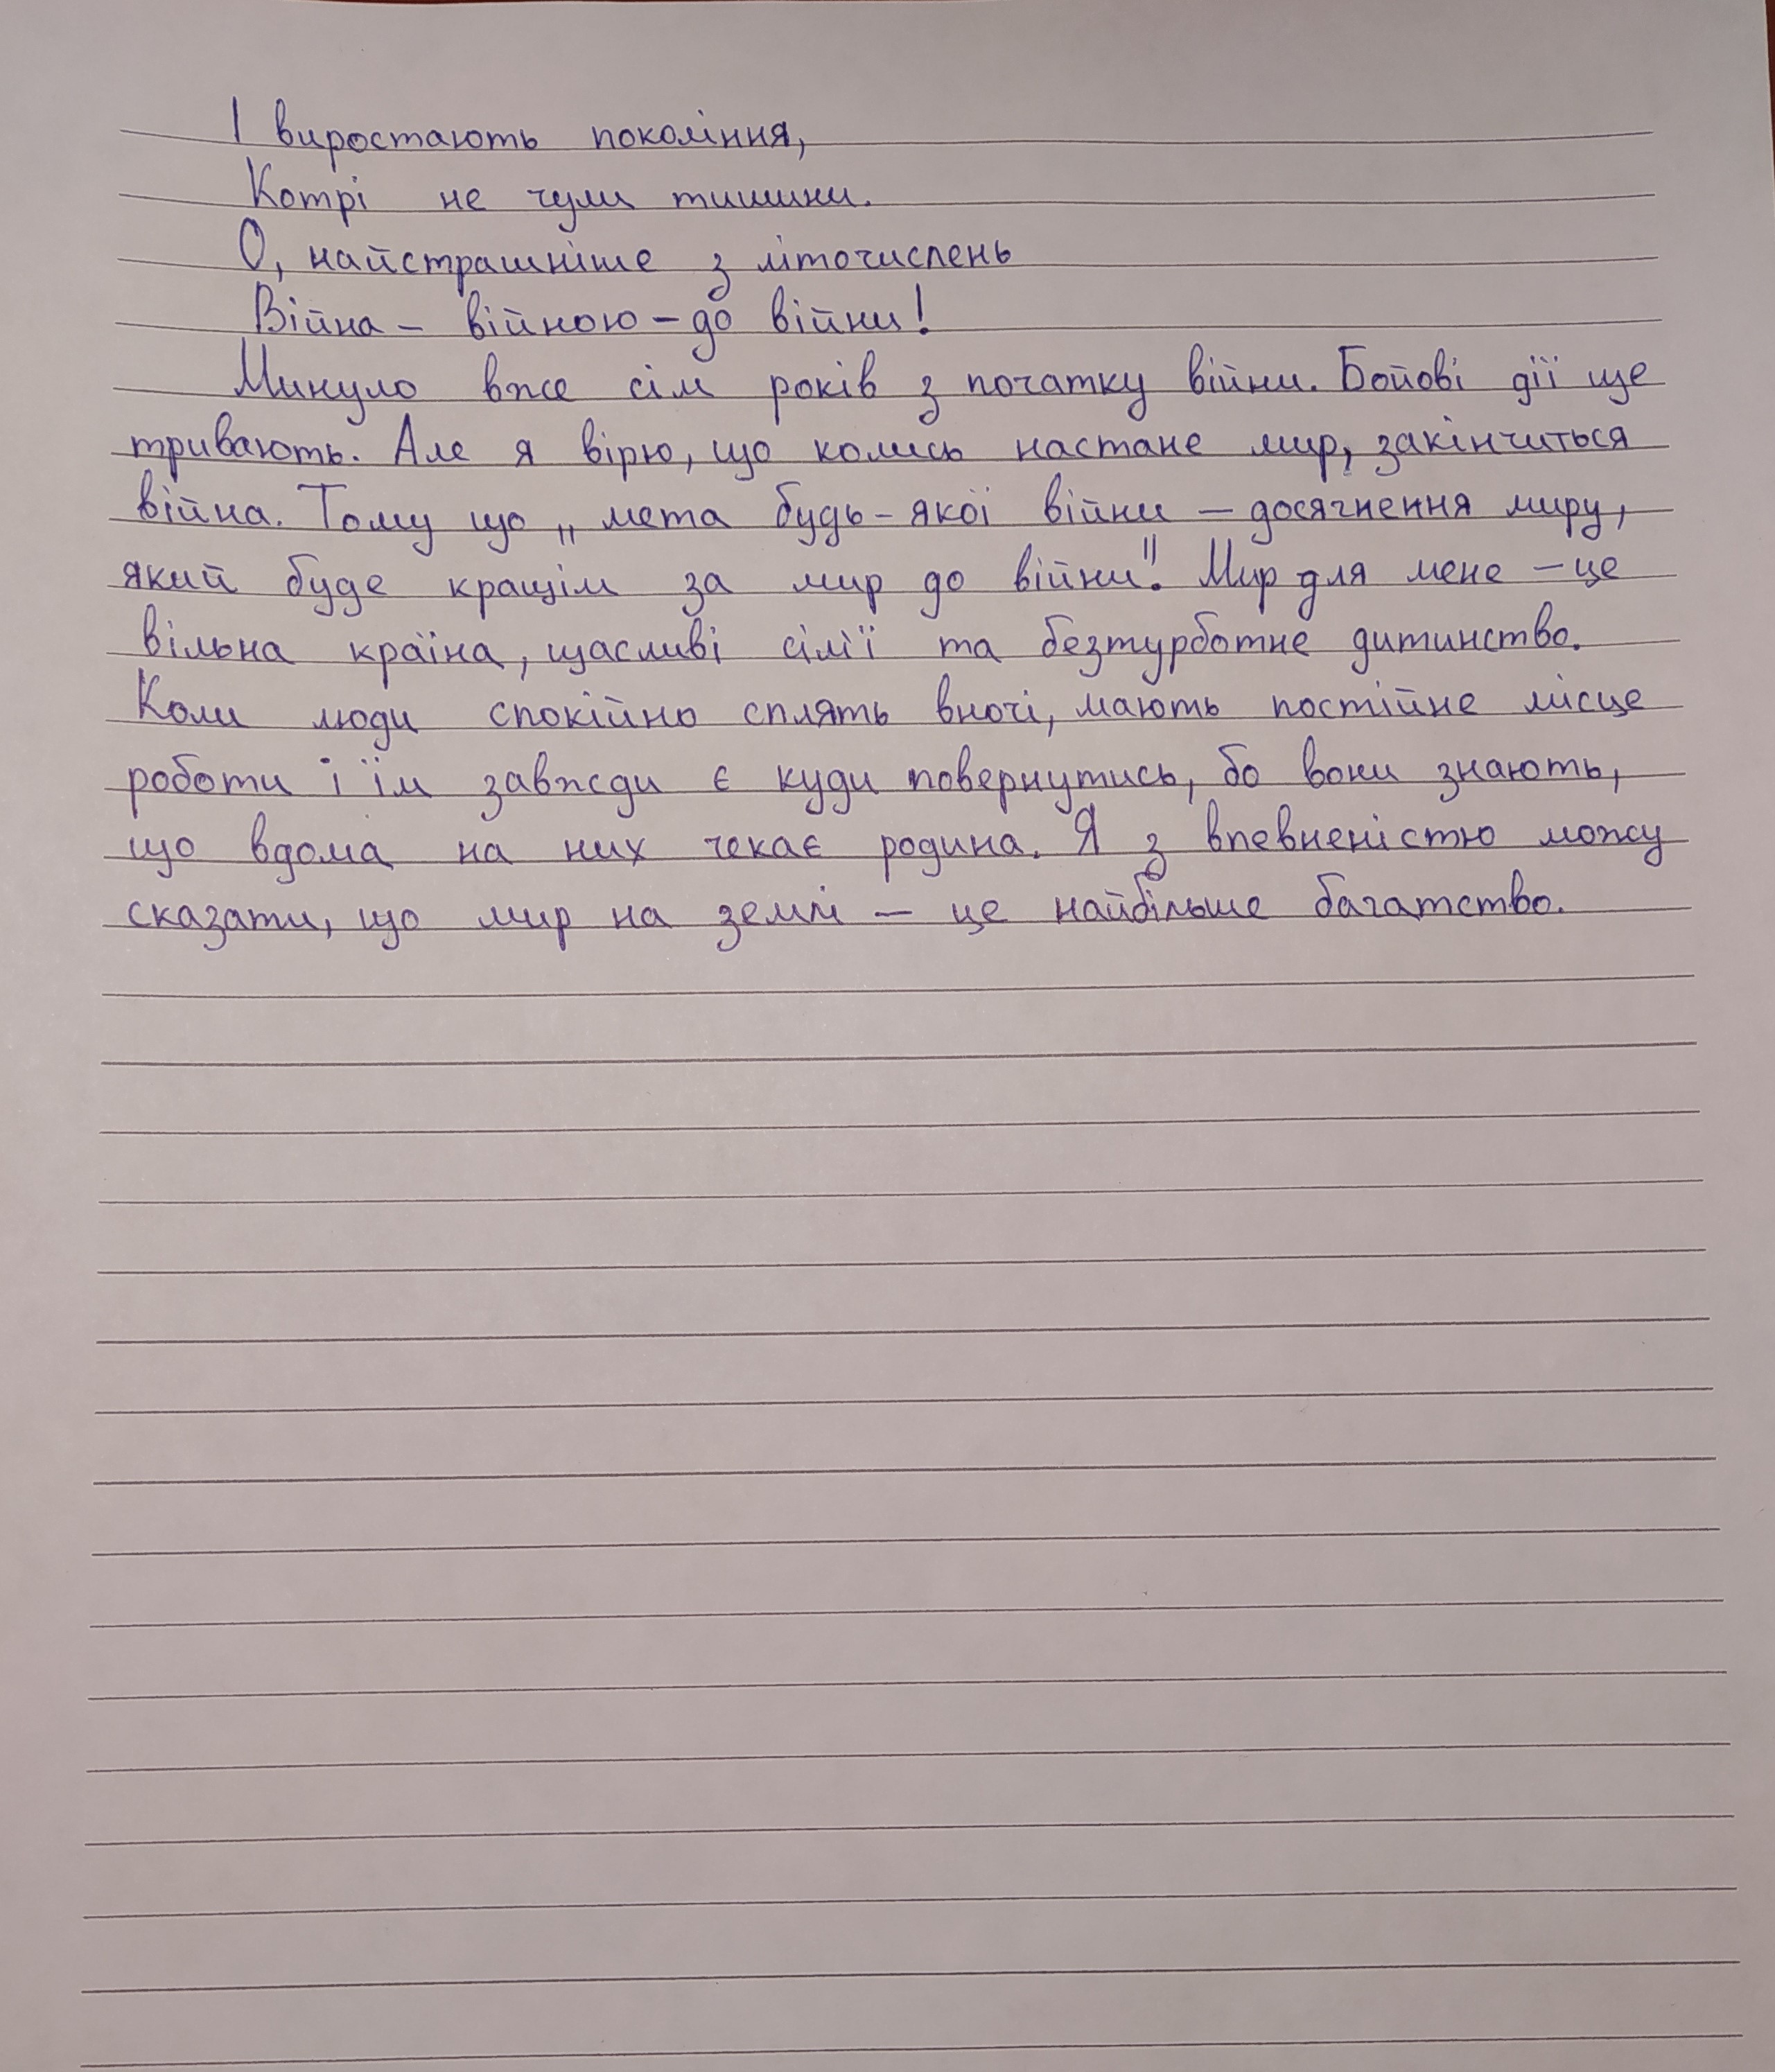 І виростають покоління,
Котрі не чули тишини.
О, найстрашніше з літочислень
Війна – війною – до війни!
Минуло вже сім років з початку війни. Бойові дії ще
тривають. Але я вірю, що колись настане мир, закінчиться
війна. Тому що „ мета будь-якої війни – досягнення миру,
який буде кращім за мир до війни". Мир для мене – це
вільна країна, щасливі сімї та безтурботне дитинство.
Коли люди спокійно сплять вночі, мають постійне місце
роботи і їм завжди є куди повернутись, бо вони знають,
що вдома на них чекає родина. Я з впевненістю можу
сказати, що мир на землі – це найбільше багатство.